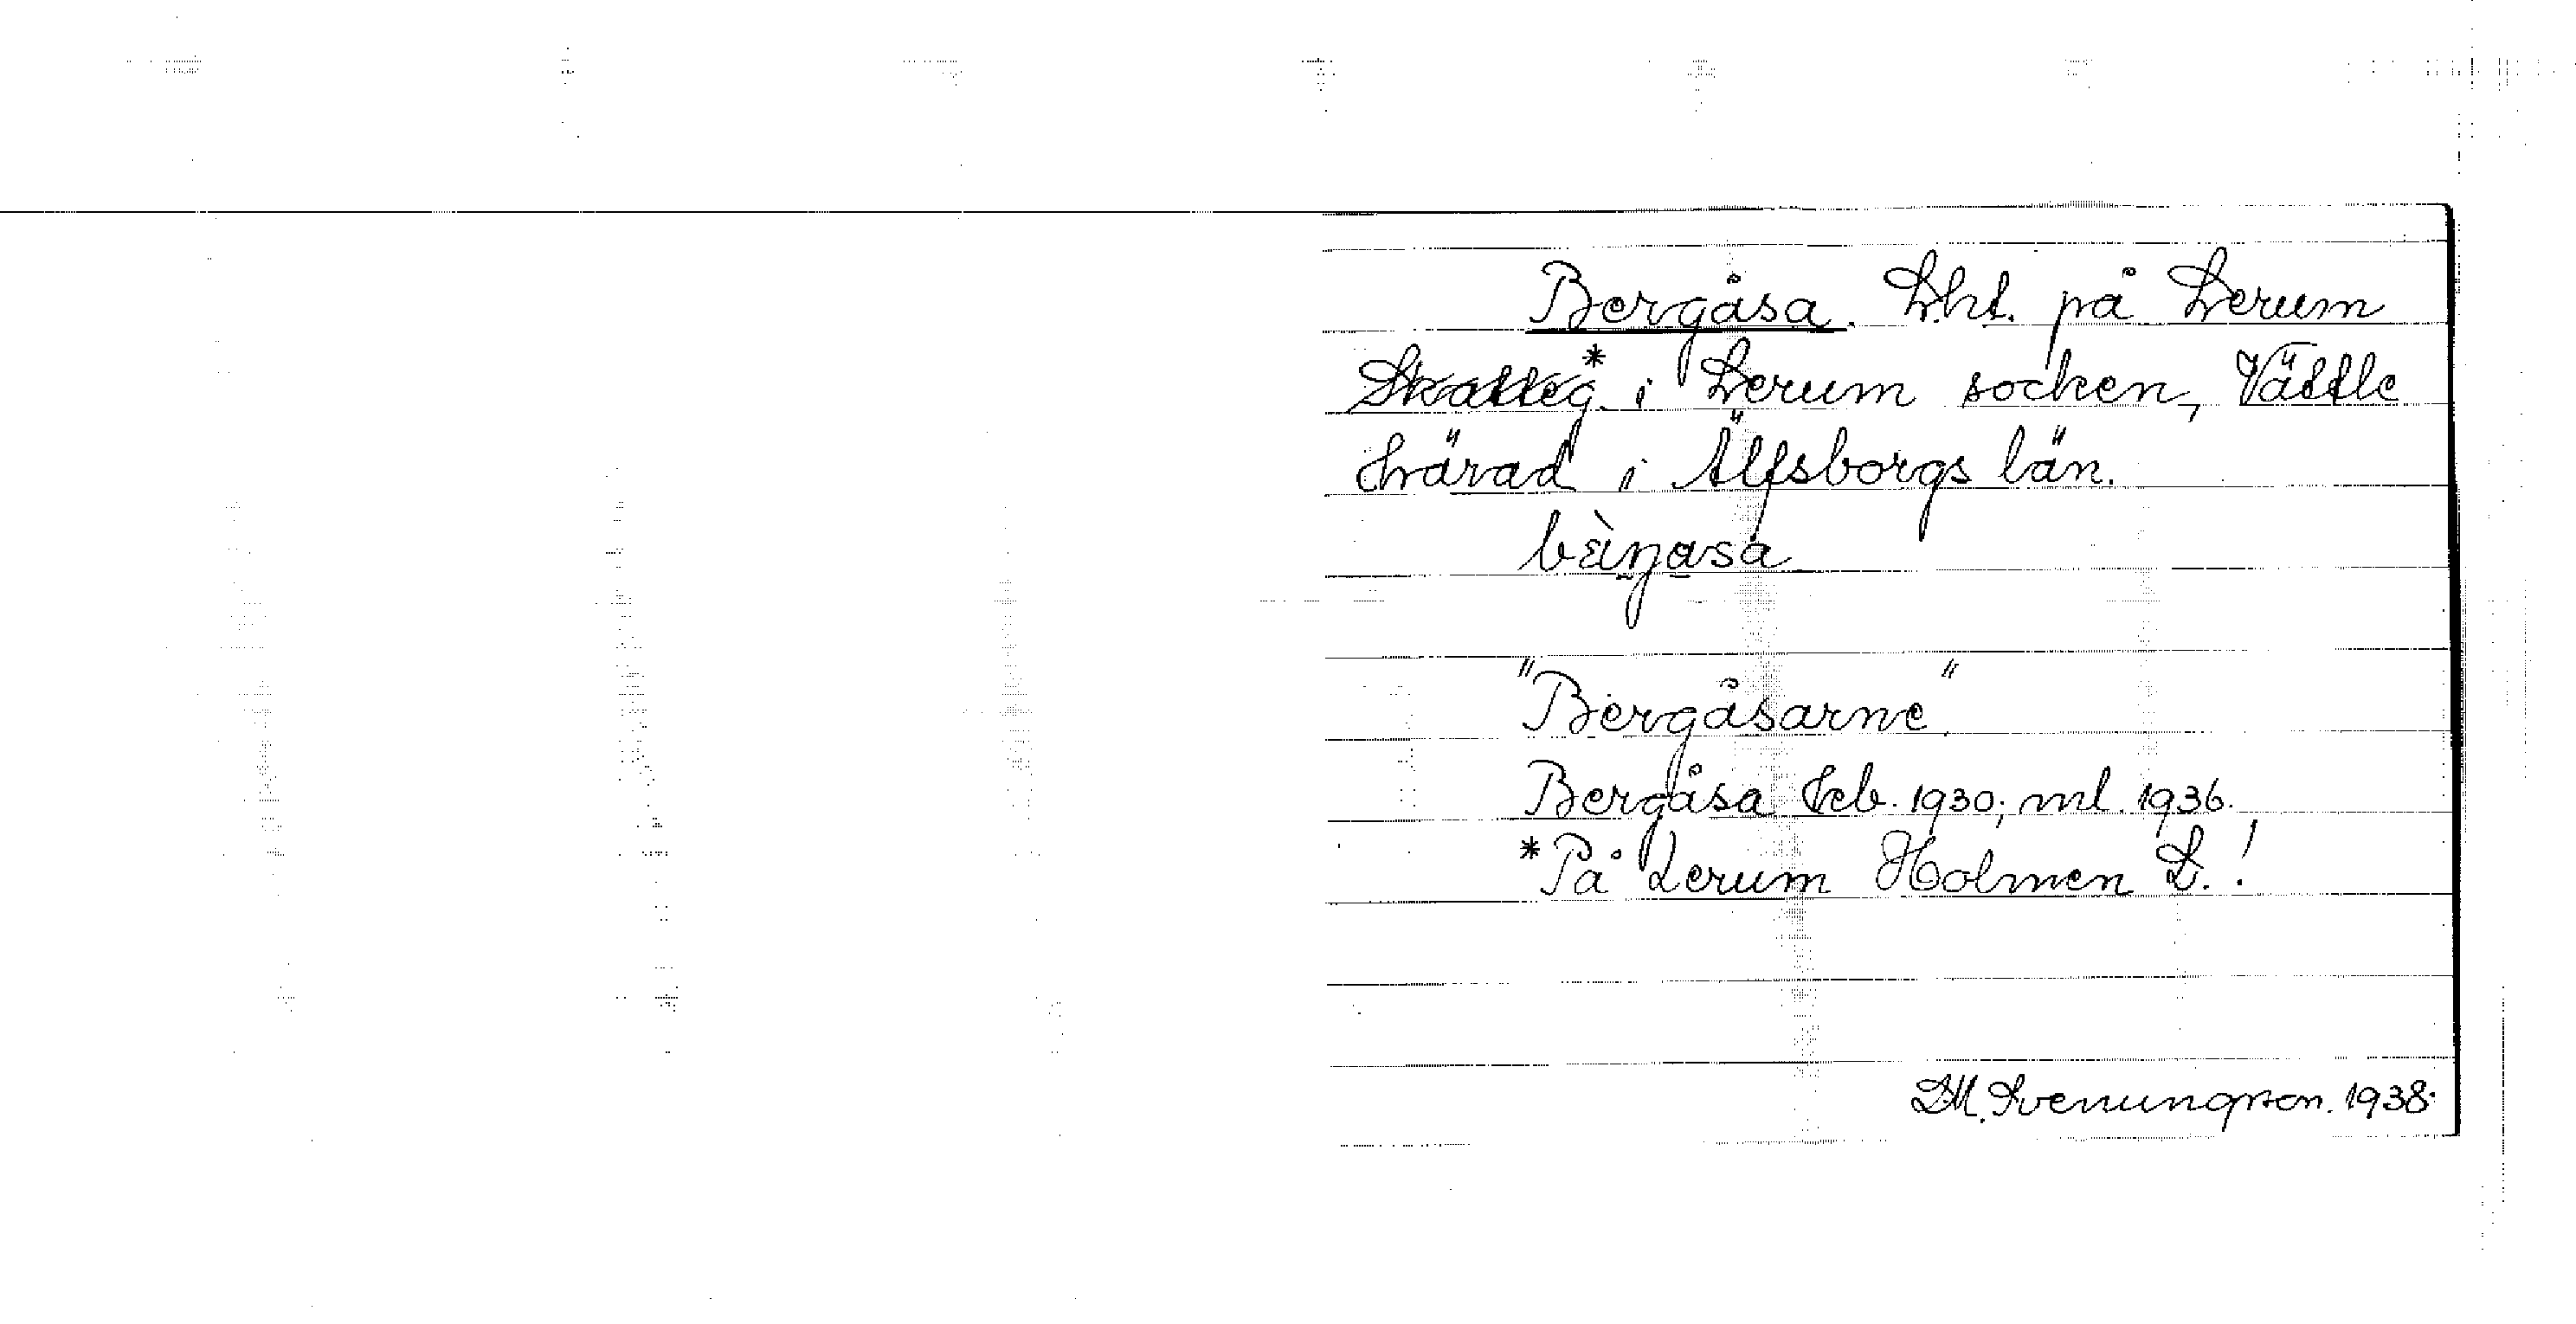 Bergåsa. Lht. på Lerum
Skatteg* i Lerum socken, Vättle
härad i Älfsborgs län.
"Bergåsarne".
Bergåsa Jeb. 1930; ml. 1936.
*På Lerum Holmen L.!
LM. Svenungson. 1938.